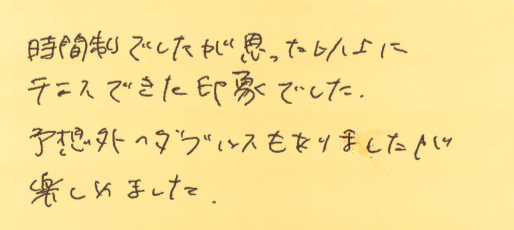 時間制でしたが思った以上に
テニスできた印象でした.
予想外のダブルスもありましたが
楽しめました.